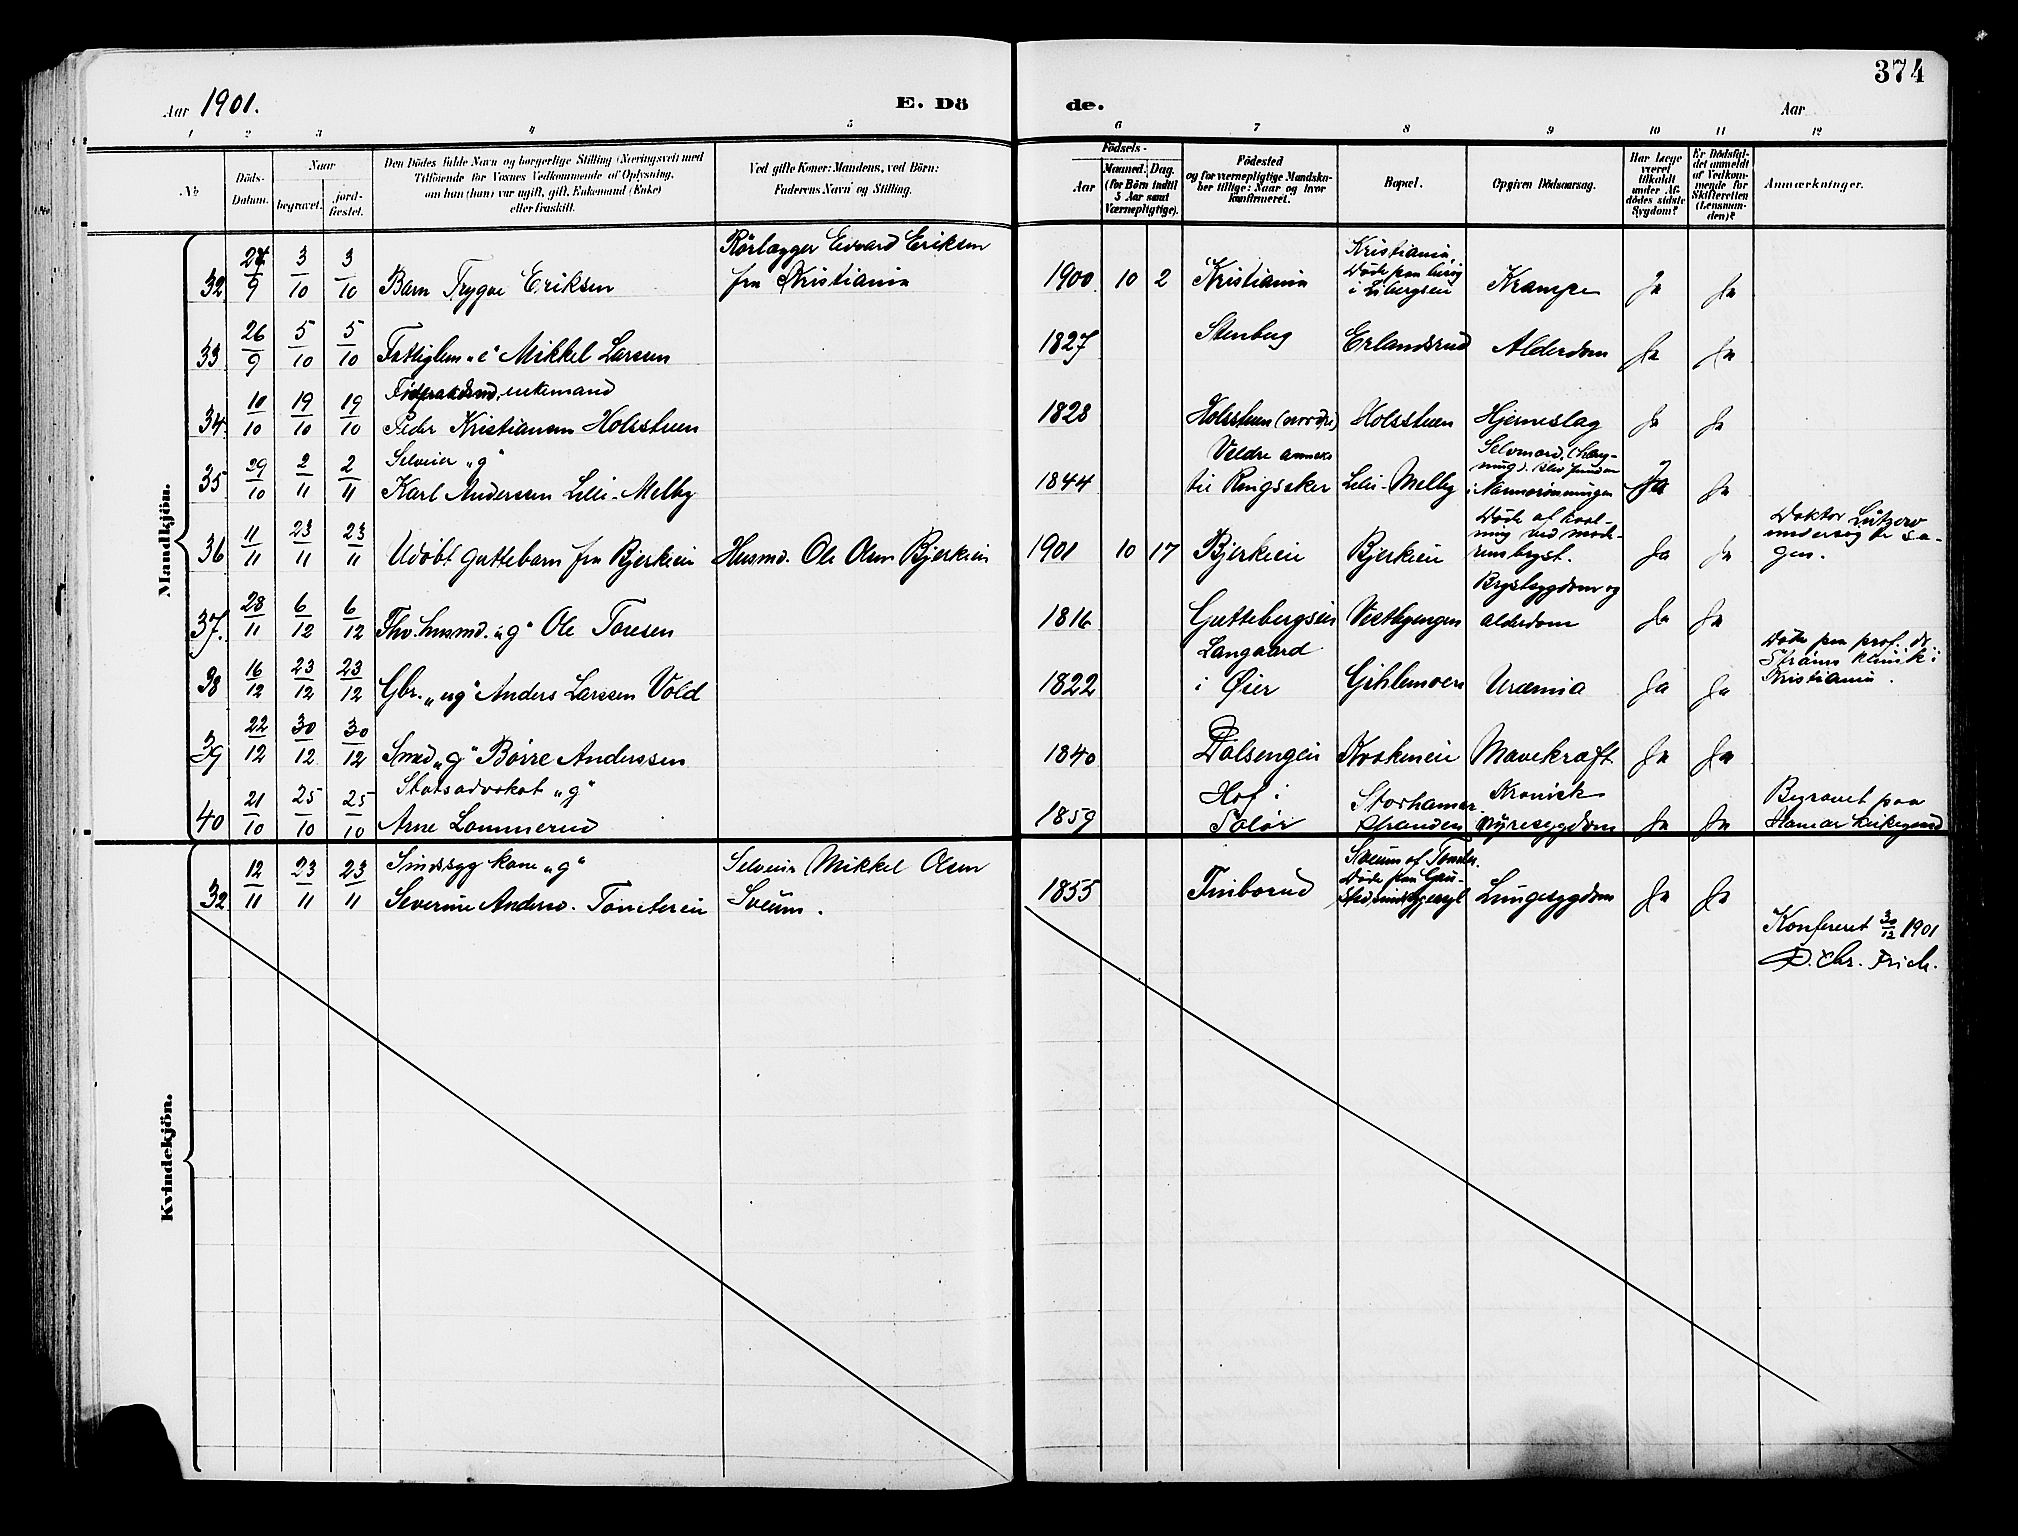 374
Aar 1901.
E. Dö
de.
Aar
1 2 3 4 5 6 7 8 9 10 11 12
No
Döds-
Datum.
Naar
begravet.
jord-
fæstet.
Den Dödes fulde Navn og borgerlige Stilling (Næringsvei) med
Tilföiende for Voxnes Vedkommende af Oplysning,
om han (hun) var ugift, gift, Enkemand (Enke)
eller fraskilt.
Ved gifte Koner: Mandens, ved Börn:
Faderens Navn og Stilling.
Födsels-
Aar
Maaned. Dag.
(for Börn indtil
5 Aar samt
Værnepligtige).
Födested
og for værnepligtige Mandska-
ber tillige: Naar og hvor
konfirmeret.
Bopæl.
Opgiven Dödsaarsag.
Har Læge
været
tilkaldt
under Af-
dödes sidste
Sygdom?
Er Dödsfal-
det anmeldt
af Vedkom-
mende for
Skifteretten
(Lensman-
den)?
Anmærkninger.
Mandkjön.
Rørlægger Edvard Eriksen
Kristiania,
32 27/9 3/10 3/10 Barn Trygve Eriksen fra Kristiania 1900 10 2 Kristiania Døde paa besøg Krampe Ja Ja
33 26/9 5/10 5/10 Fattiglem "e" Mikkel Larsen 1827 Stenberg Erlandsrud Alderdom Ja Ja
enkemand
34 10/10 19/10 19/10 Peder Kristiansen Holssteen 1828 Holssteen (nordre) Holssteen Hjerneslag Ja Ja
Selveier "g" Veldre annex Selvmord.
35 29/10 2/11 2/11 Karl Anderssen Lille-Melby 1844 til Ringsaker Lille-Melby Ja Ja
Døde af kvæl-
ning ved mode-
rens bryst.
36 11/11 23/11 23/11 Udøbt guttebarn fra Bjerkeeie Husmd. Ole Olsen Bjerkeeie 1901 10 17 Bjerkeeie Bjerkeeie Ja Ja
Doktor Lützow
undersøgte sa-
gen.
Brystsygdom og
37. 28/11 6/12 6/12 Fhv. husmd. "g" Ole Toresen 1816 Guttebergseie Alderdom Ja Ja
Langaard
38 16/12 23/12 23/12 Gbr. "ug" Anders Larssen Vold 1822 i Øier Gihlemoen Uræmia Ja Ja
Døde paa prof. dr.
Strøms klinik i
Kristiania.
39 22/12 30/12 30/12 Smed "g" Børre Anderssen 1840 Dalsengeie Mavekræft Ja Ja
Statsadvokat "g" Hof i Storhamar Kronisk
40 21/10 25/10 25/10 Arne Lommerud 1859 Solør stranden nyresygdom Ja Ja
Begravet paa
Hamar kirkegaard
Kvindekjön.
Sindssyg kone "g" Selveier Mikkel Olsen
32 12/11 23/11 23/11 Severine Andersd. Sveum. 1855 Finborud Døde paa Gau-
stad sindssygeasyl Lungesygdom Ja Ja
Konfereret 30/12 1901
D. Chr. Frich.